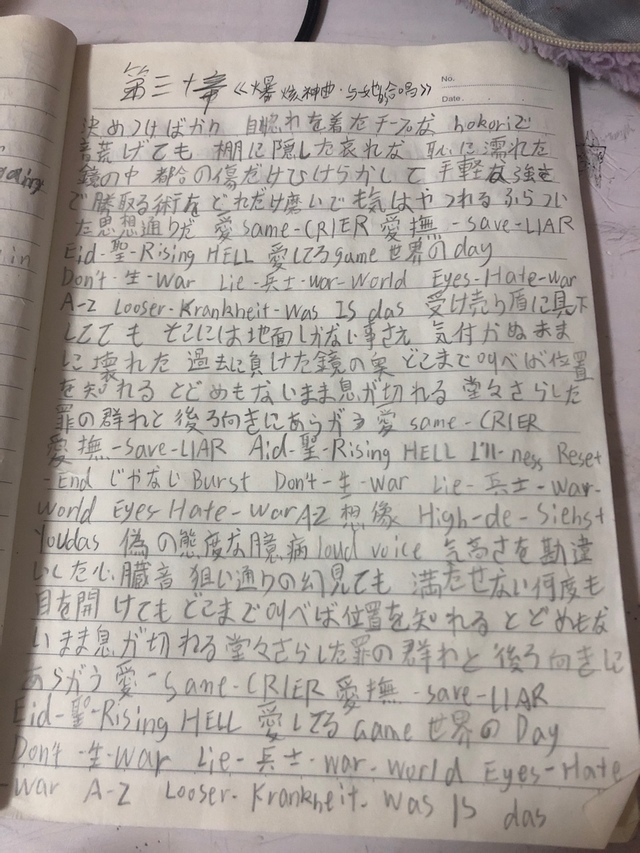 第三十章《爆炎神曲·与她的合唱》
No.
Date
決めつけばかり 自惚れを着たチープな hokoriで
音荒げても 棚に隠した哀れな 恥に濡れた
鏡の中 都合の傷だけひけらかして 手軽な強さ
で勝取る術を どれだけ磨いでも気はやつれる ふらつい
た思想通りだ 愛 same-CRIER 愛撫-save-LIAR
Eid-聖-Rising HELL 愛してる game 世界のday
Don't-生-War Lie-兵士-war-World Eyes-Hate-war
A-Z Looser-Krankheit-Was IS das 受け売り盾に見下
してても そこには地面しかない事さえ 気付かぬまま
に壊れた 過去に負けた鏡の奥 どこまで叫べば位置
を知れる とどめもないまま息が切れる 堂々さらした
罪の群れと 後ろ向きにあらがう愛 same-CRIER
愛撫-save-LIAR Aid-聖-Rising HELL I'll-ness Reset
-End じゃなじ Burst Don't-生-War Lie-兵士-War-
World Eyes-Hate-War A-Z 想像 High-de-Siehst
Youdas 偽の態度な臆病 loud voice 気高さを勘違
いした心臓音 狙い通りの幻見ても 満たせない何度も
目を開けてもどこまで叫べば位置を知れる とどめもな
いまま息が切れる 堂々さらした罪の群れと 後ろ向きに
あらがう 愛-Same-CRIER 愛撫-save-LIAR
Eid-聖-Rising HELL 愛してる Game 世界の Day
Don't-生-War Lie-兵士-war-World Eyes-Hate
-War A-Z Looser-Krankheit-Was IS das